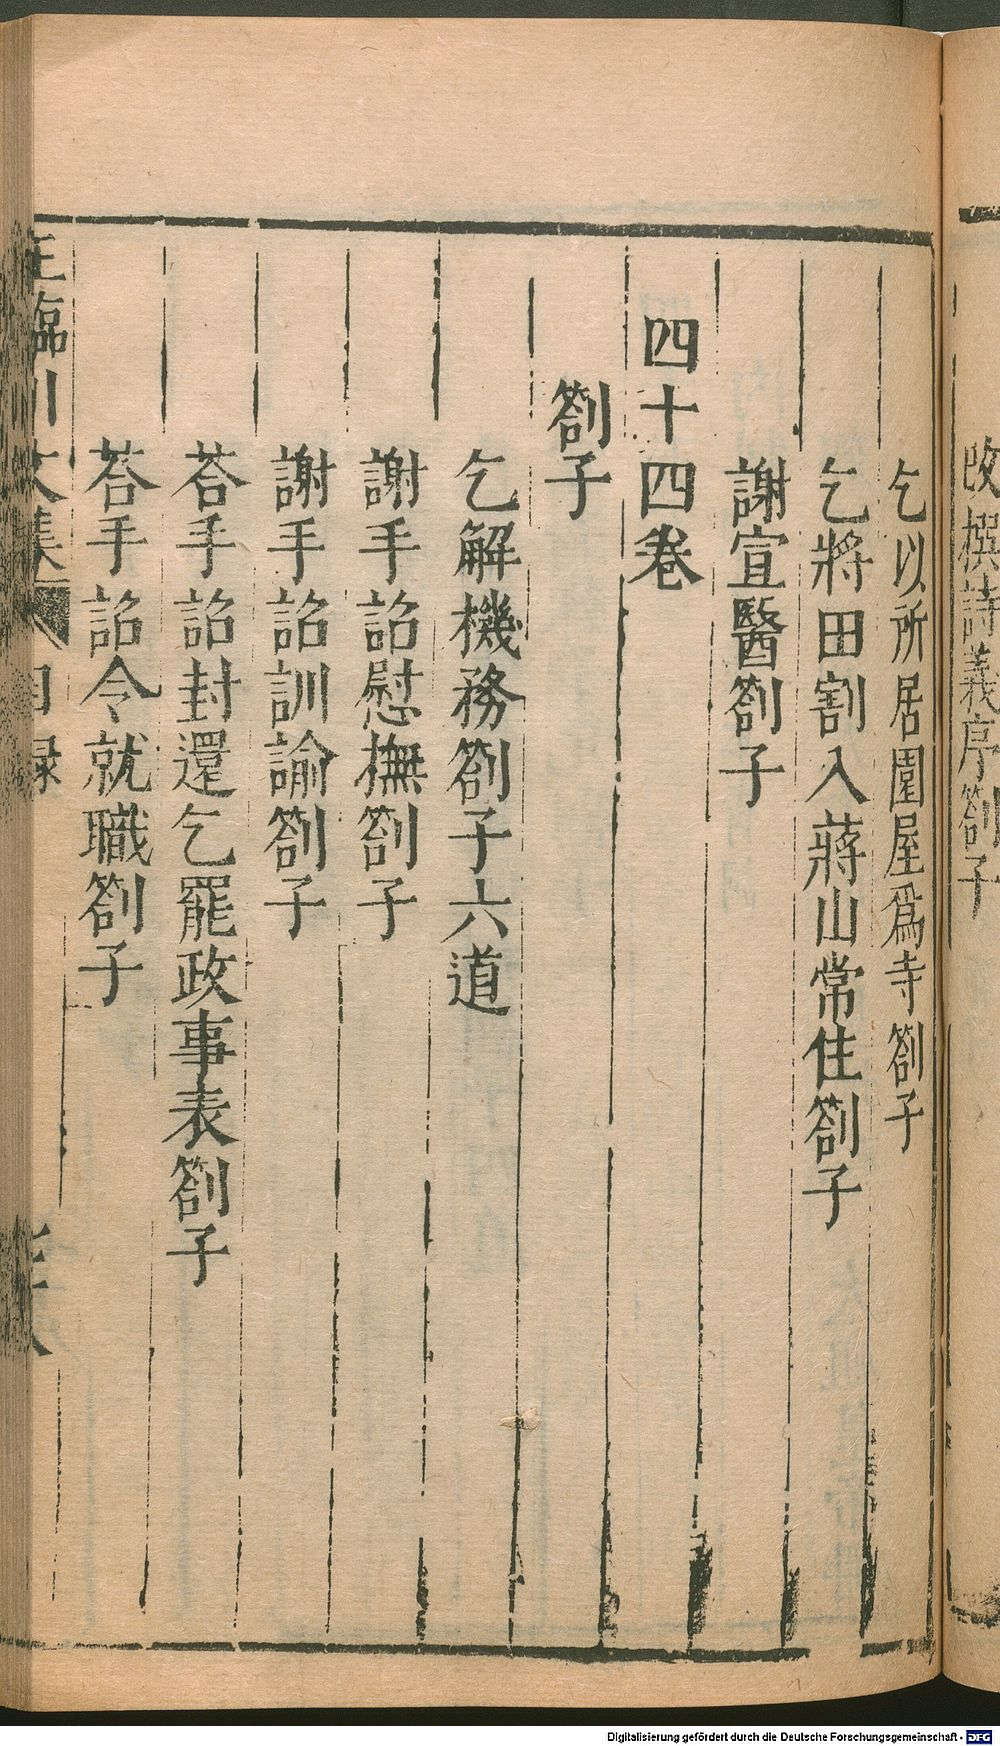 改撰詩義序劄子
乞以所居園屋爲寺劄子
乞將田割入蔣山常住劄子
謝宣醫劄子
四十四卷
劄子
乞解機務劄子六道
謝手詔慰撫劄子
謝手詔訓諭劄子
荅手詔封還乞罷政事表劄子
荅手詔令就職劄子
王臨川文集 目録
Digitalisierung gefördert durch die Deutsche Forschungsgemeinschaft - DFG